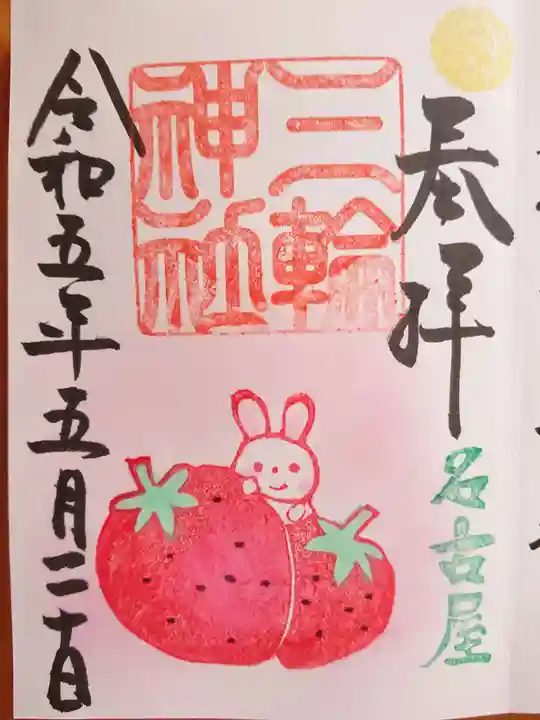 奉拝
名古屋
三輪
神社
令和五年五月二十日